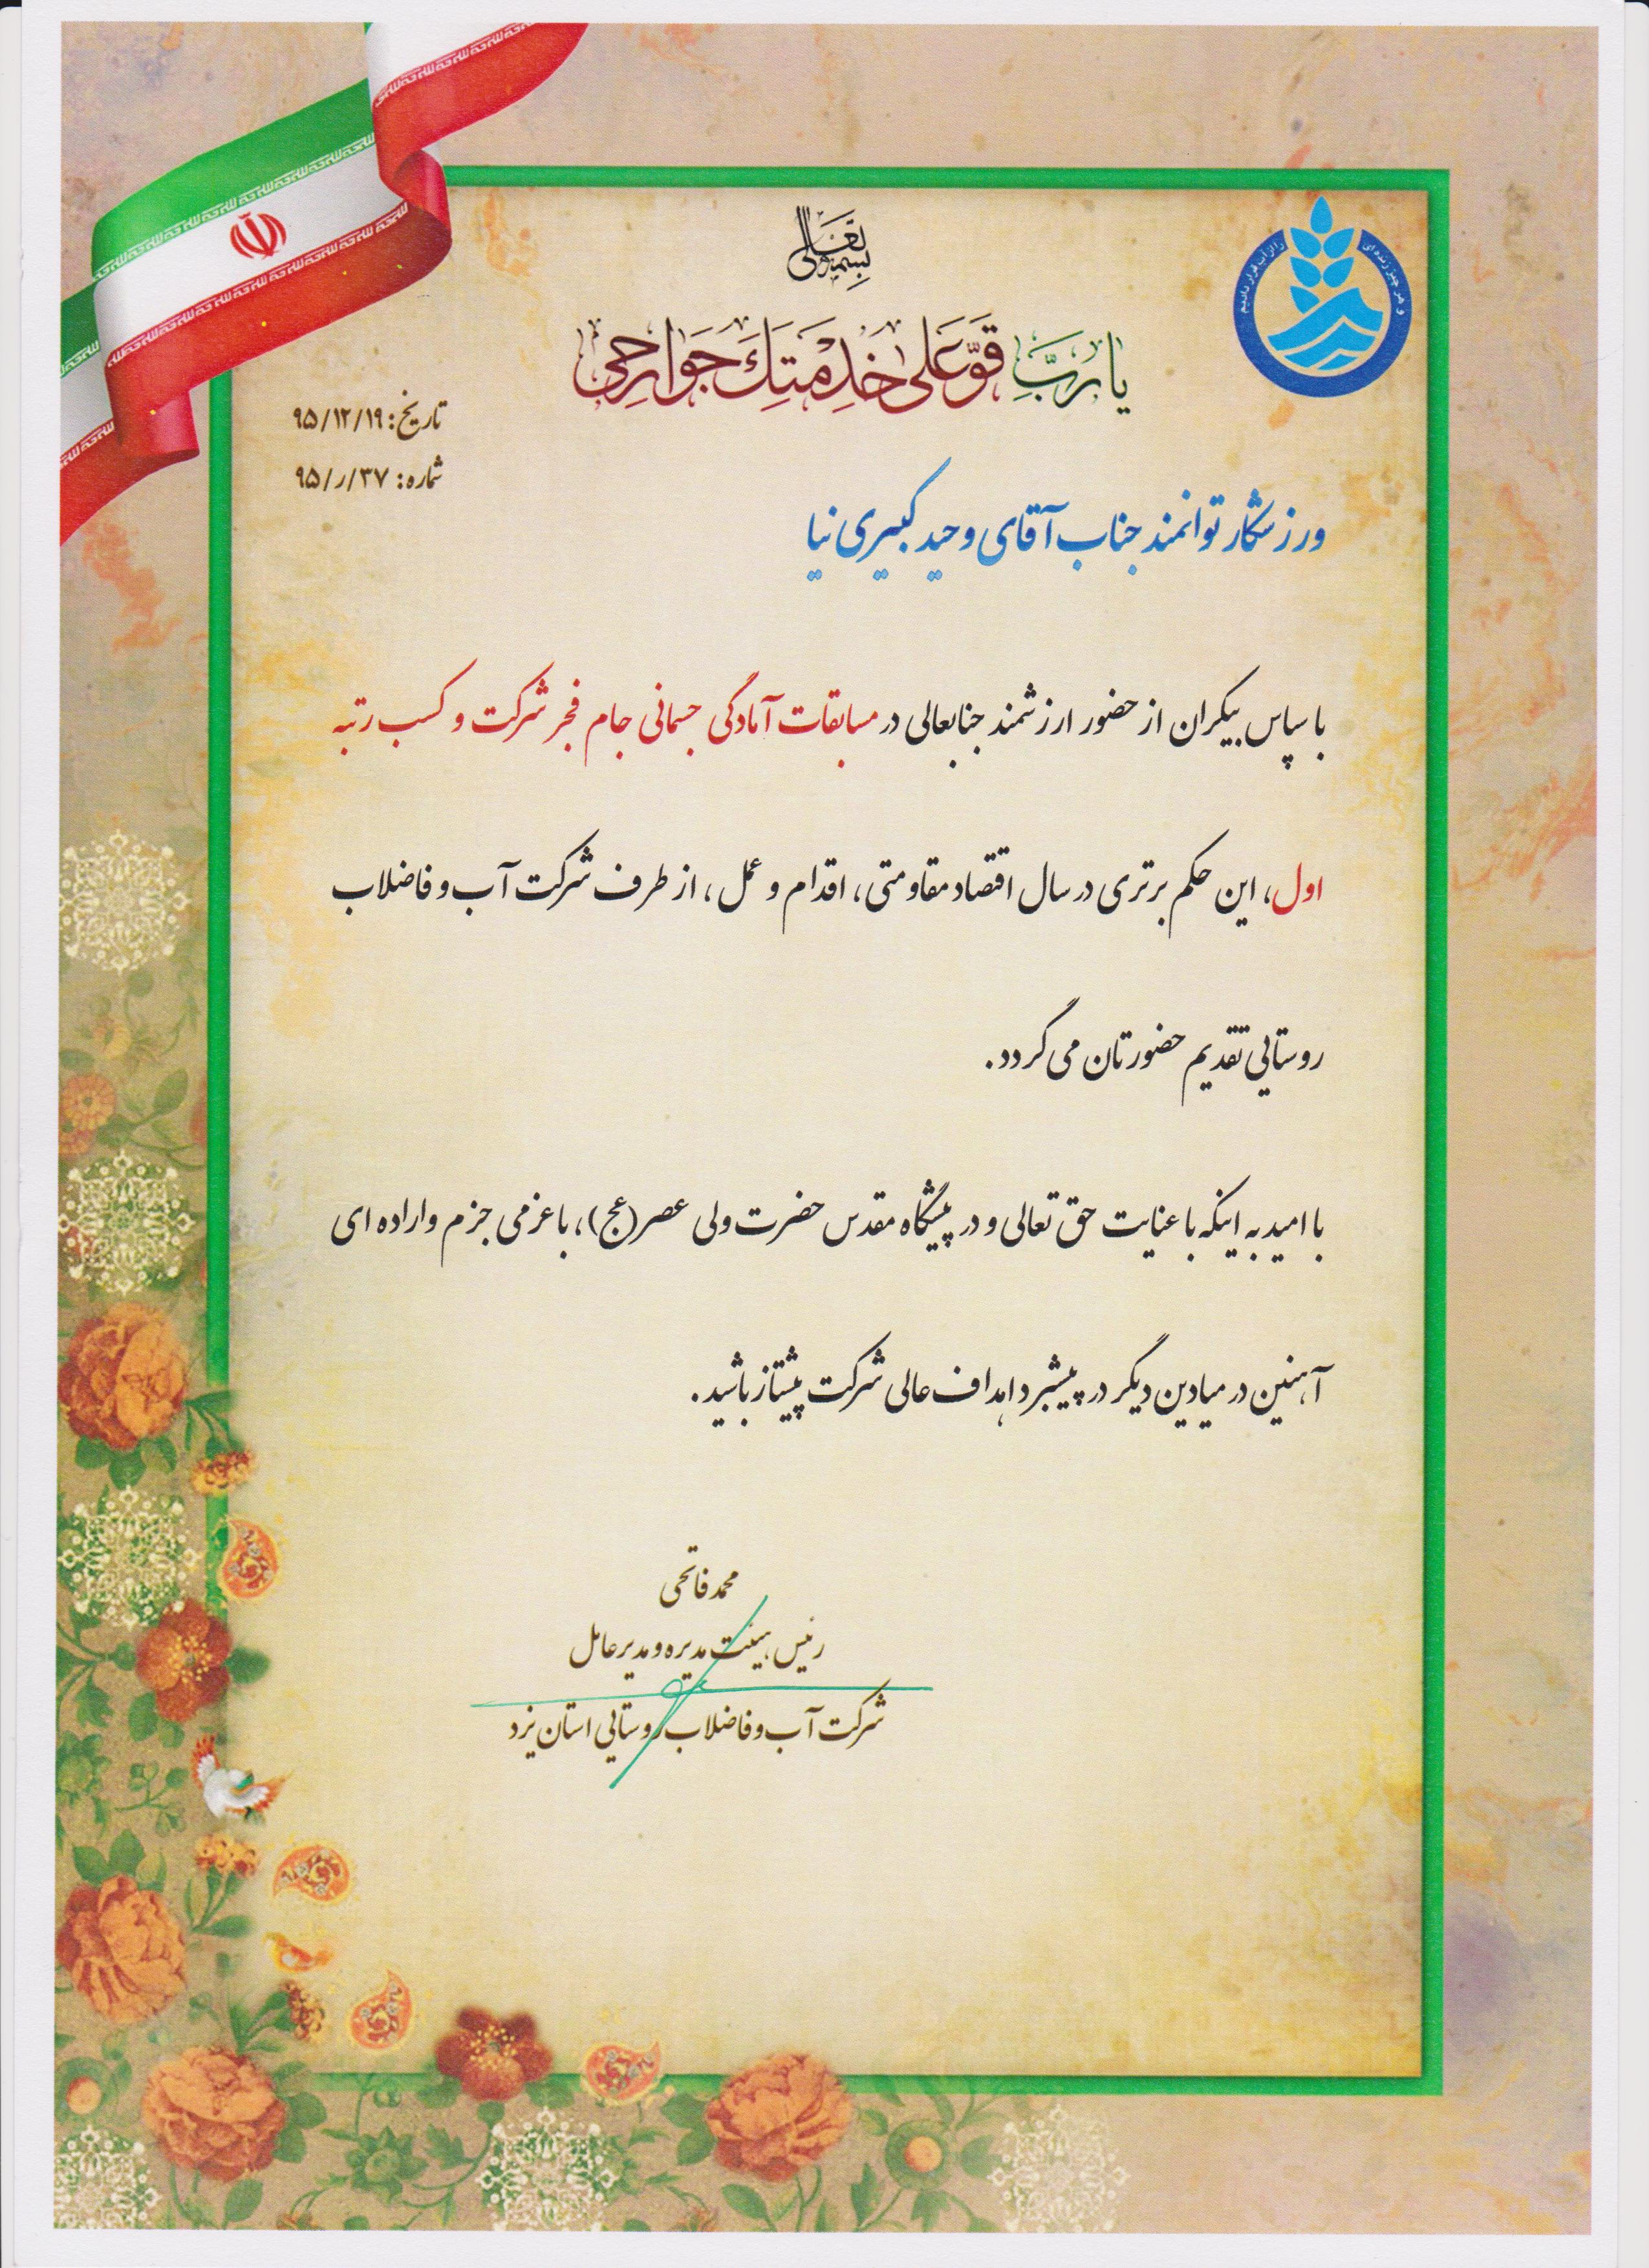 بسمه تعالی
و هر چیز زنده ای را از آب قرار دادیم
یا رَبِّ قَوِّ عَلی خِدْمَتِکَ جَوارِحی
تاریخ: ۹۵/۱۲/۱۹
شماره: ۳۷/ر/۹۵
ورزشکار توانمند جناب آقای وحید کبیری نیا
با سپاس بیکران از حضور ارزشمند جنابعالی در مسابقات آمادگی جسمانی جام فجر شرکت و کسب رتبه
اول، این حکم برتری در سال اقتصاد مقاومتی، اقدام و عمل، از طرف شرکت آب و فاضلاب
روستایی تقدیم حضورتان می گردد.
با امید به اینکه با عنایت حق تعالی و در پیشگاه مقدس حضرت ولی عصر (عج)، با عزمی جزم و اراده ای
آهنین در میادین دیگر در پیشبرد اهداف عالی شرکت پیشتاز باشید.
محمد فاتحی
رئیس هیئت مدیره و مدیر عامل
شرکت آب و فاضلاب روستایی استان یزد